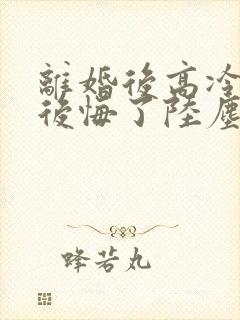 離婚後高冷
後悔了陸塵
蜂若丸